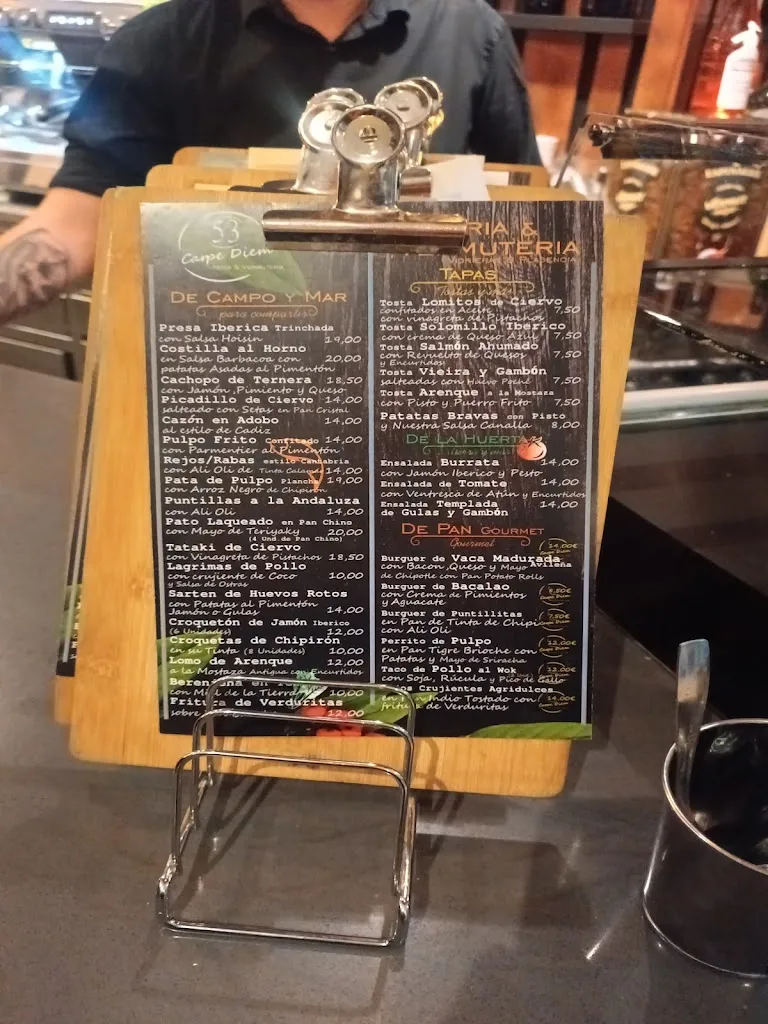 53
Carpe Diem
RIA &
MUTERIA
TAPAS
DE CAMPO Y MAR
para compartir
Presa Iberica Trinchada
con Salsa Hoisin 19,00
Costilla al Horno
con Salsa Barbacoa con 20,00
patatas Asadas al Pimentón
Cachopo de Ternera 18,50
con Jamón ,Pimiento y Queso
Picadillo de Ciervo 14,00
salteado con Setas en Pan Cristal
Cazón en Adobo 14,00
al estilo de Cadiz
Pulpo Frito Confitado 14,00
con Parmentier al Pimentón
Rejos/Rabas estilo Cantabria
con Ali Oli de Tinta Calamar 14,00
Pata de Pulpo Plancha 19,00
con Arroz Negro de Chipirón
Puntillas a la Andaluza
con Ali Oli 14,00
Pato Laqueado en Pan Chino
con Mayo de Teriyaky 20,00
(4 Und de Pan Chino)
Tataki de Ciervo
con Vinagreta de Pistachos 18,50
Lagrimas de Pollo
con crujiente de Coco 10,00
y Salsa de Ostras
Sarten de Huevos Rotos
con Patatas al Pimentón
Jamón o Gulas 14,00
Croquetón de Jamón Iberico
(6 Unidades) 12,00
Croquetas de Chipirón
en su Tinta (8 Unidades) 10,00
Lomo de Arenque 12,00
a la Mostaza Antigua con Encurtidos
con Miel de la Tierra 10,00
Fritura de Verduritas
sobre 12,00
Tosta Lomitos de Ciervo
confitados en Aceite 7,50
con vinagreta de Pistachos
Tosta Solomillo Iberico
con crema de Queso Azul 7,50
Tosta Salmón Ahumado
con Revuelto de Quesos 7,50
y Encurtidos
Tosta Vieira y Gambón
salteadas con Huevo Poché 7,50
Tosta Arenque a la Mostaza
con Pisto y Puerro Frito 7,50
Patatas Bravas con Pisto
y Nuestra Salsa Canalla 8,00
DE LA HUERTA
Ensalada Burrata 14,00
con Jamón Iberico y Pesto
Ensalada de Tomate 14,00
con Ventresca de Atún y Encurtidos
Ensalada Templada 14,00
de Gulas y Gambón
DE PAN GOURMET
Gourmet
Burguer de Vaca Madurada 14,00€
con Bacon ,Queso y Mayo Avileña
de Chipotle con Pan Potato Rolls
Burguer de Bacalao 8,50€
con Crema de Pimientos
y Aguacate
Burguer de Puntillitas 7,50€
en Pan de Tinta de Chipi
con Ali Oli
Perrito de Pulpo 12,00€
en Pan Tigre Brioche con
Patatas y Mayo de Sriracha
Taco de Pollo al Wok 12,00€
con Soja, Rúcula y Pico de Gallo
os Crujientes Agridulces
en Pan Indio Tostado con 14,00€
fritura de Verduritas